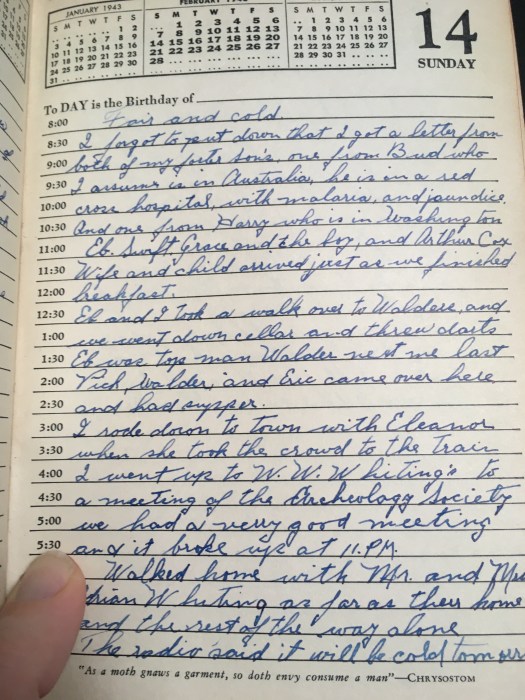 JANUARY 1943
S M T W T F S
1 2
3 4 5 6 7 8 9
10 11 12 13 14 15 16
17 18 19 20 21 22 23
24 25 26 27 28 29 30
31
FEBRUARY
S M T W T F S
1 2 3 4 5 6
7 8 9 10 11 12 13
14 15 16 17 18 19 20
21 22 23 24 25 26 27
28
S M T W T F S
1 2 3 4 5 6
7 8 9 10 11 12 13
14 15 16 17 18 19 20
21 22 23 24 25 26 27
28 29 30 31
14
SUNDAY
To DAY is the Birthday of
8:00 Fair and cold.
8:30 I forgot to put down that I got a letter from
9:00 both of my foster sons, one from Bud who
9:30 I assume is in Australia, he is in a red
10:00 cross hospital, with malaria, and jaundice.
10:30 And one from Harry who is in Washington
11:00 Eb. Swift, Grace and the boy, and Arthur Cox
11:30 Wife and child arrived just as we finished
12:00 breakfast.
12:30 Eb and I took a walk over to Walders, and
1:00 we went down cellar and threw darts
1:30 Eb was top man Walder next me last
2:00 Vick, Walder, and Eric came over here
2:30 and had supper.
3:00 I rode down to town with Eleanor
3:30 when she took the crowd to the train
4:00 I went up to W. W. Whiting's to
4:30 a meeting of the Archeology Society
5:00 we had a very good meeting
5:30 and it broke up at 11. P.M.
Walked home with Mr. and Mrs
Whiting as far as their home
and the rest of the way alone
The radio said it will be cold
"As a moth gnaws a garment, so doth envy consume a man"—CHRYSOSTOM